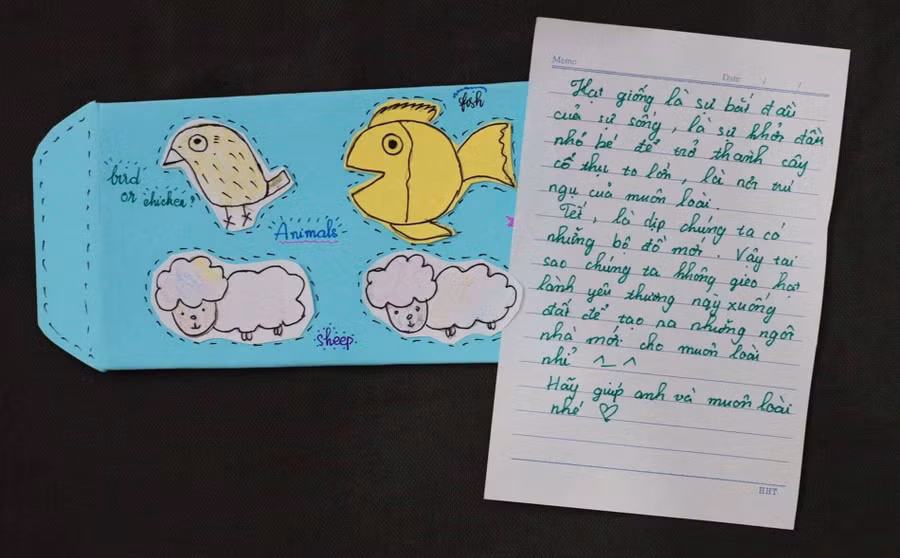 bird
or chicken?
fish
Animals
sheep
Memo
Date / /
Hạt giống là sự bắt đầu
của sự sống, là sự khởi đầu
nhỏ bé để trở thành cây
cổ thụ to lớn, là nơi trú
ngụ của muôn loài.
Tết, là dịp chúng ta có
những bộ đồ mới. Vậy tại
sao chúng ta không gieo hạt
lành yêu thương này xuống
đất để tạo ra những ngôi
nhà mới cho muôn loài
nhỉ ^_^
Hãy giúp anh và muôn loài
nhé ♡
HHT